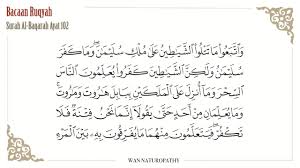 Bacaan Ruqyah
Surah Al-Baqarah Ayat 102
وَٱتَّبَعُوا۟ مَا تَتْلُوا۟ ٱلشَّيَـٰطِينُ عَلَىٰ مُلْكِ سُلَيْمَـٰنَ ۖ وَمَا كَفَرَ
سُلَيْمَـٰنُ وَلَـٰكِنَّ ٱلشَّيَـٰطِينَ كَفَرُوا۟ يُعَلِّمُونَ ٱلنَّاسَ
ٱلسِّحْرَ وَمَآ أُنزِلَ عَلَى ٱلْمَلَكَيْنِ بِبَابِلَ هَـٰرُوتَ وَمَـٰرُوتَ ۚ
وَمَا يُعَلِّمَانِ مِنْ أَحَدٍ حَتَّىٰ يَقُولَآ إِنَّمَا نَحْنُ فِتْنَةٌ فَلَا
تَكْفُرْ ۖ فَيَتَعَلَّمُونَ مِنْهُمَا مَا يُفَرِّقُونَ بِهِۦ بَيْنَ ٱلْمَرْءِ
WAN NATUROPATHY